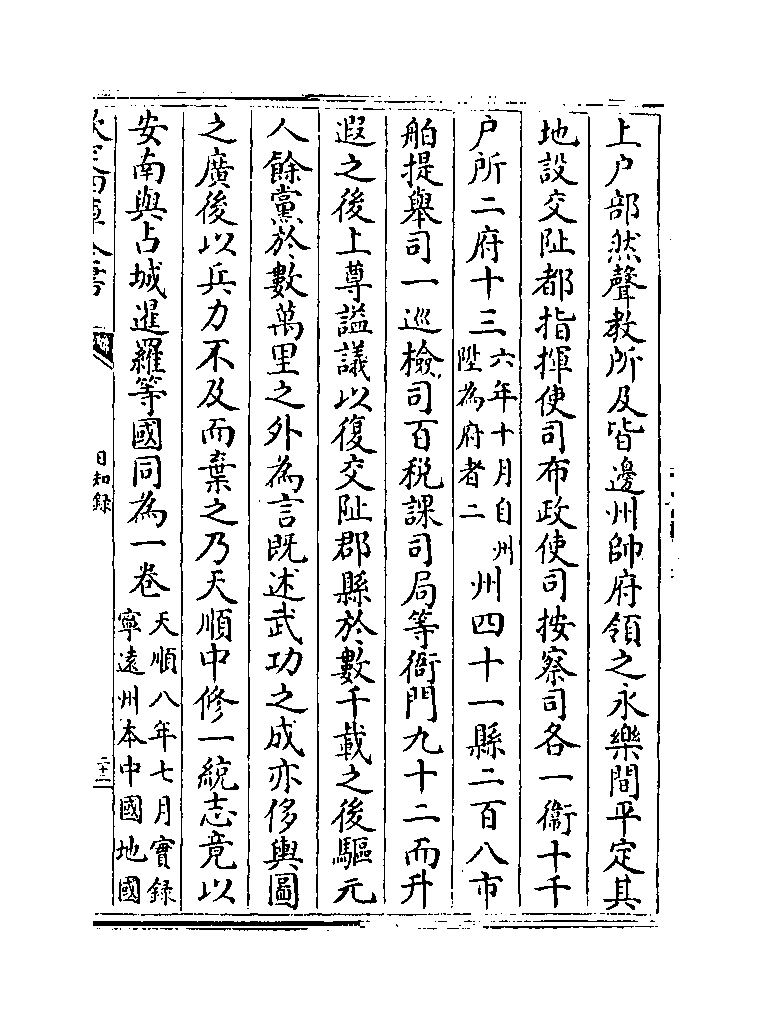 上户部然聲教所及皆邊州帥府領之永樂間平定其
地設交阯都指揮使司布政使司按察司各一衞十千
户所二府十三六年十月自州陞為府者二州四十一縣二百八市
舶提舉司一巡檢司百税課司局等衙門九十二而升
遐之後上尊謚議以復交阯郡縣於數千載之後驅元
人餘黨於數萬里之外為言既述武功之成亦侈輿圖
之廣後以兵力不及而棄之乃天順中修一統志竟以
安南與占城暹羅等國同為一卷天順八年七月實録寧遠州本中國地國
欽定四庫全書
日知録
二十二